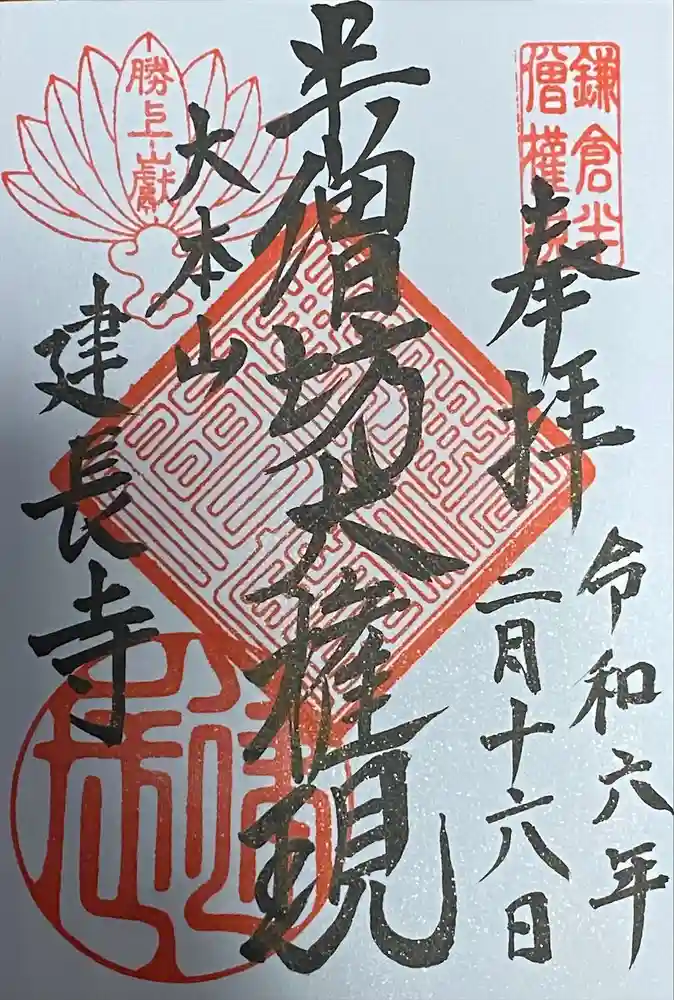 令和六年
二月十六日
奉拝
鎌倉半
僧權
半僧坊大権現
大本山
建長寺
勝上嶽